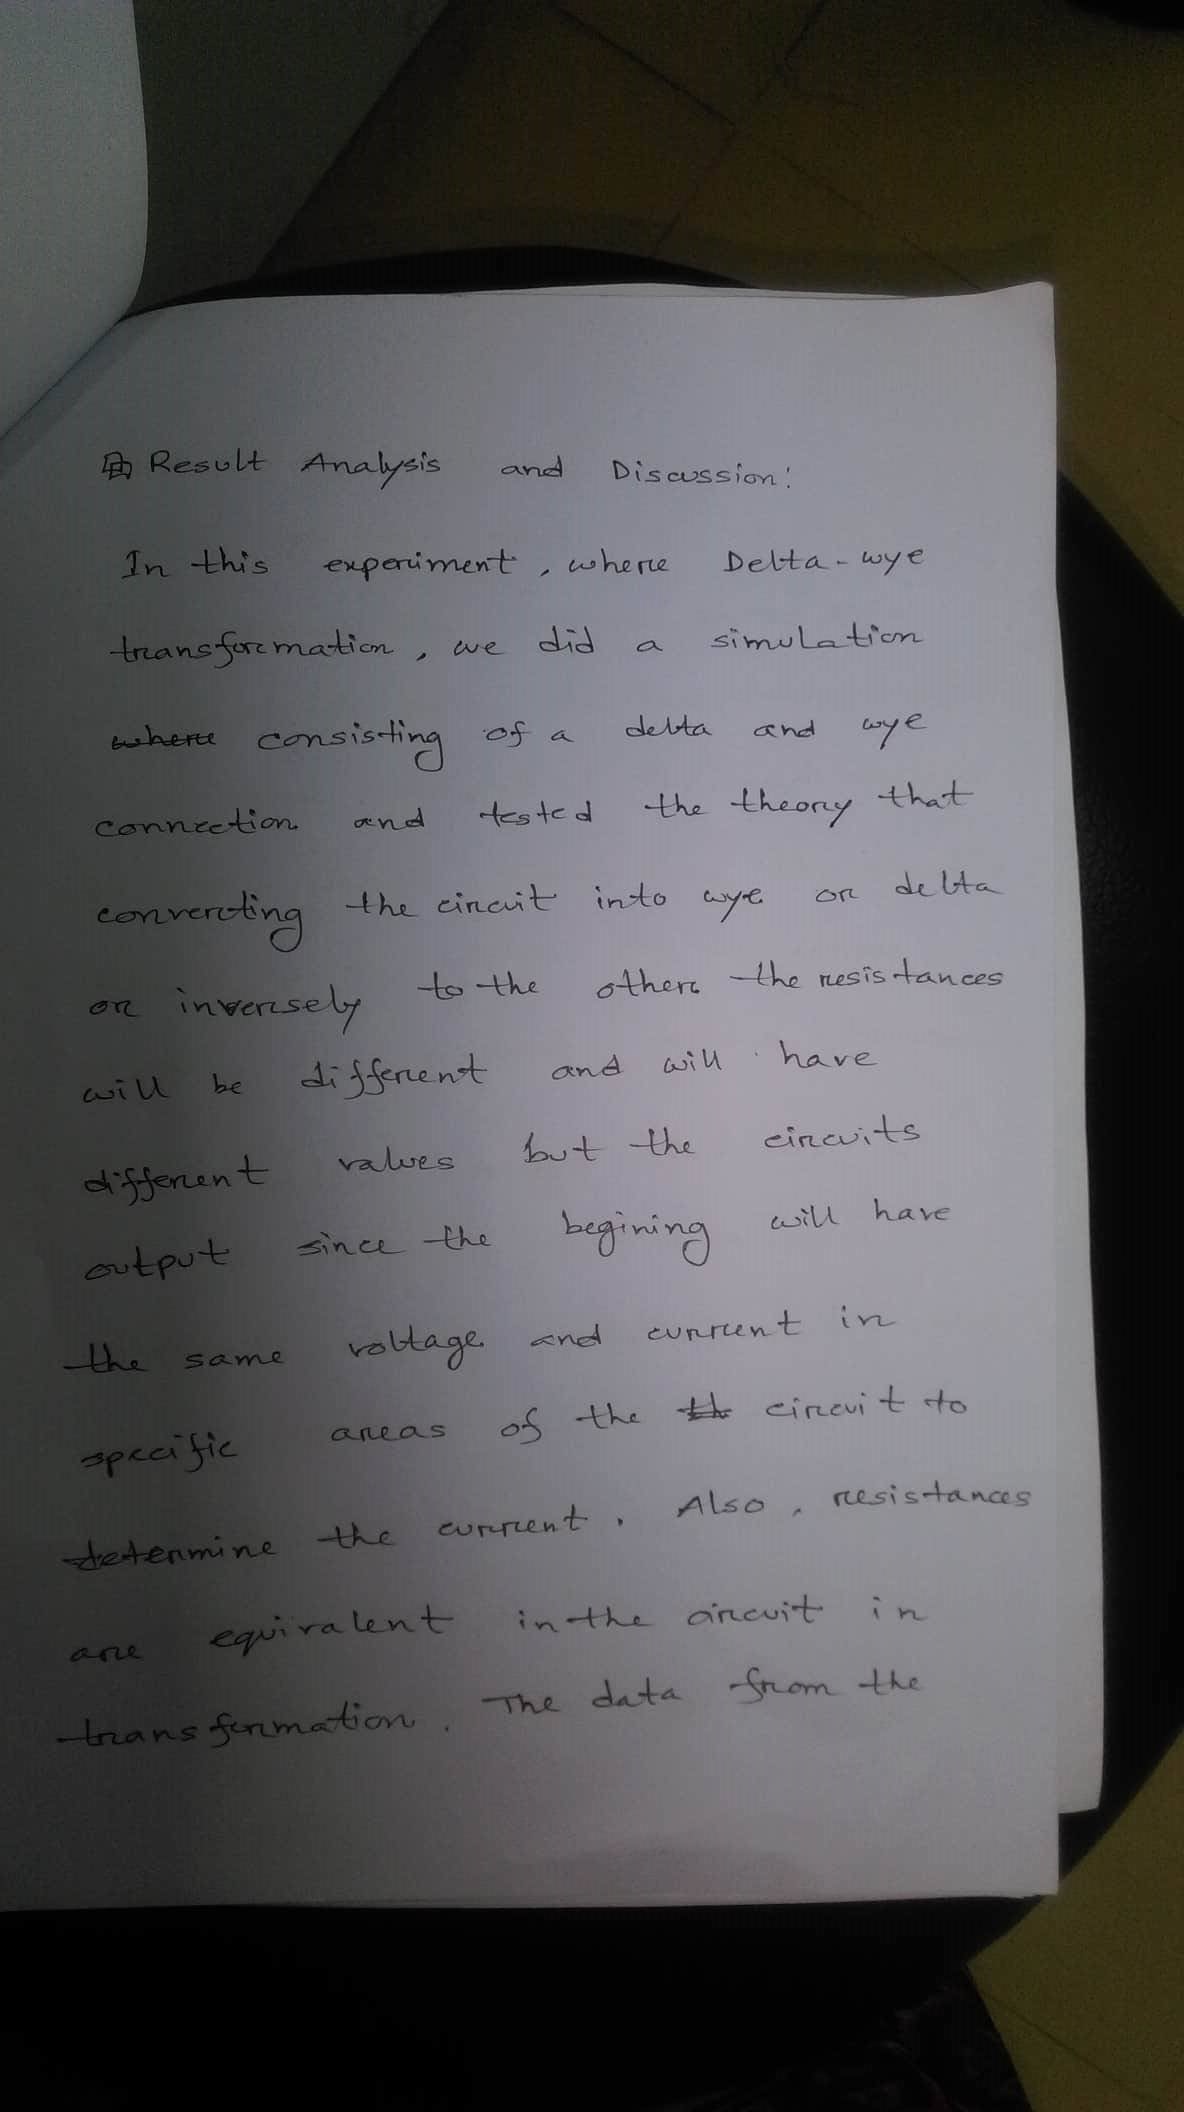 Result Analysis and Discussion:
In this experiment, where Delta-wye
transformation, we did a simulation
where consisting of a delta and wye
connection and tested the theory that
converting the circuit into wye or delta
or inversely to the other the resistances
will be different and will have
different values but the circuits
output since the begining will have
the same voltage and current in
specific areas of the th circuit to
determine the current. Also, resistances
are equivalent in the circuit in
transformation. The data from the